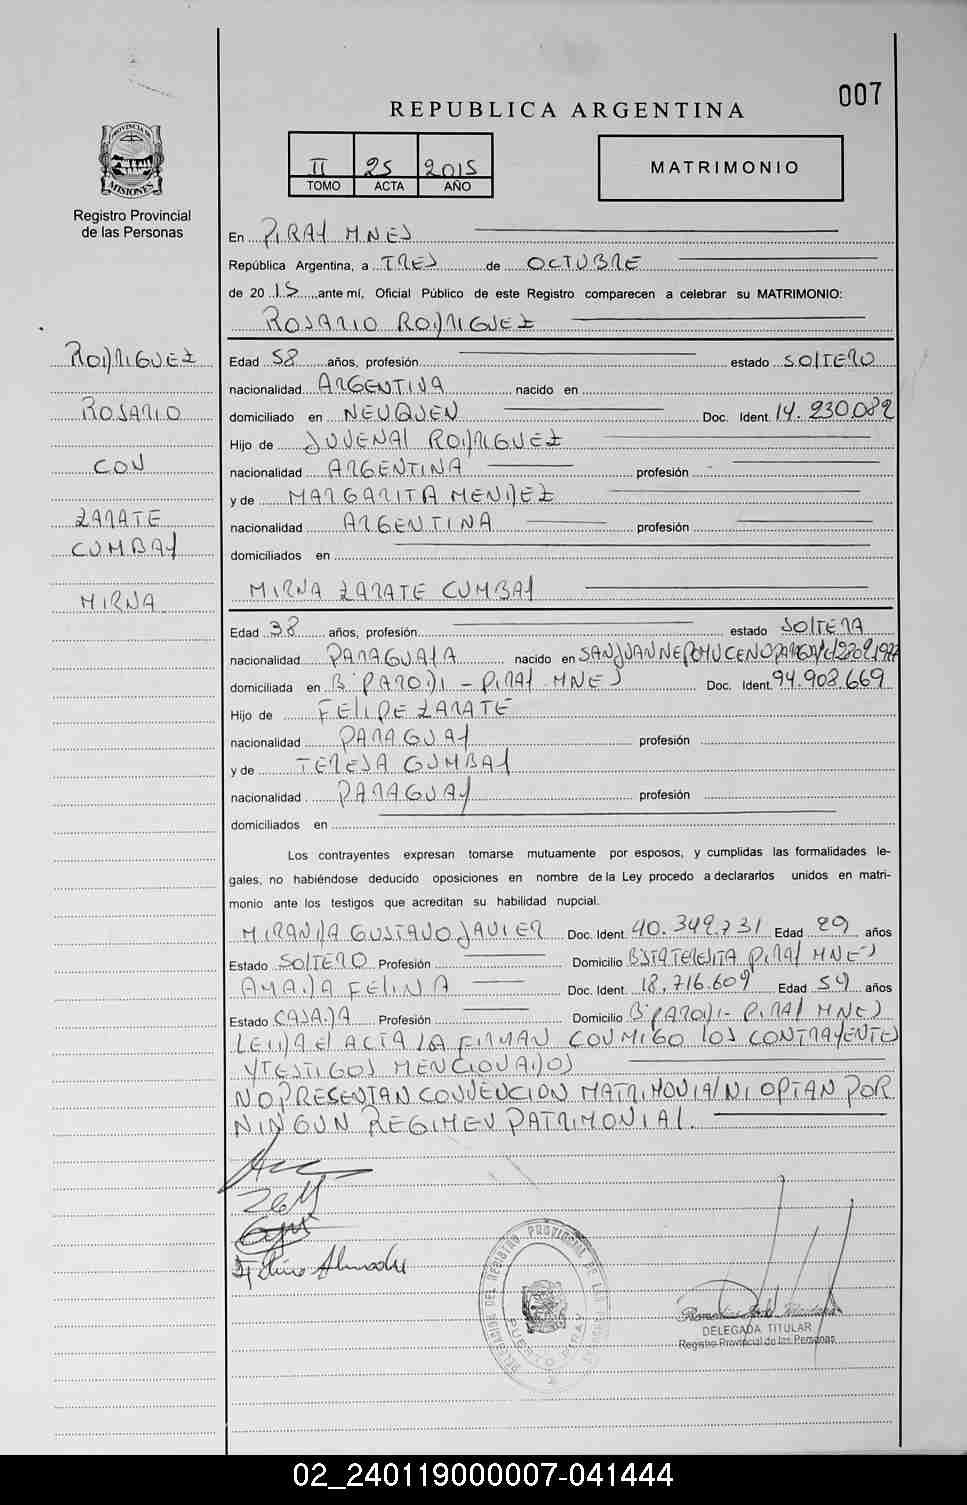 007
REPUBLICA ARGENTINA
II 25 2015
TOMO ACTA AÑO
MATRIMONIO
PROVINCIA DE
MISIONES
Registro Provincial
de las Personas
En PIRAY MNES
República Argentina, a TRES de OCTUBRE
de 2015 ante mí, Oficial Público de este Registro comparecen a celebrar su MATRIMONIO:
ROSARIO RODRIGUEZ
RODRIGUEZ
ROSARIO
CON
ZARATE
CUMBAY
MIRNA
Edad 58 años, profesión estado SOLTERO
nacionalidad ARGENTINA nacido en
domiciliado en NEUQUEN Doc. Ident. 14.230.082
Hijo de JUVENAL RODRIGUEZ
nacionalidad ARGENTINA profesión
y de MARGARITA MENDEZ
nacionalidad ARGENTINA profesión
domiciliados en
MIRNA ZARATE CUMBAY
Edad 38 años, profesión estado SOLTERA
nacionalidad PARAGUAYA nacido en SAN JUAN NEPOMUCENO PARAGUAY
domiciliada en Bº PARODI - PIRAY MNES Doc. Ident. 94.908.669
Hijo de FELIPE ZARATE
nacionalidad PARAGUAY profesión
y de TERESA GUMBAY
nacionalidad PARAGUAY profesión
domiciliados en
Los contrayentes expresan tomarse mutuamente por esposos, y cumplidas las formalidades le-
gales, no habiéndose deducido oposiciones en nombre de la Ley procedo a declararlos unidos en matri-
monio ante los testigos que acreditan su habilidad nupcial.
MIRANDA GUSTAVO JAVIER Doc. Ident. 40.342.731 Edad 29 años
Estado SOLTERO Profesión Domicilio Bº STA TERESITA PIRAY MNES
AMADA FELINA Doc. Ident. 18.716.609 Edad 59 años
Estado CASADA Profesión Domicilio Bº PARODI - PIRAY MNES
LEIDA EL ACTA LA FIRMAN CONMIGO LOS CONTRAYENTES
Y TESTIGOS MENCIONADOS
NO PRESENTAN CONVENCION MATRIMONIAL NI OPTAN POR
NINGUN REGIMEN PATRIMONIAL.
DELEGADA TITULAR
Registro Provincial de las Personas
02_240119000007-041444